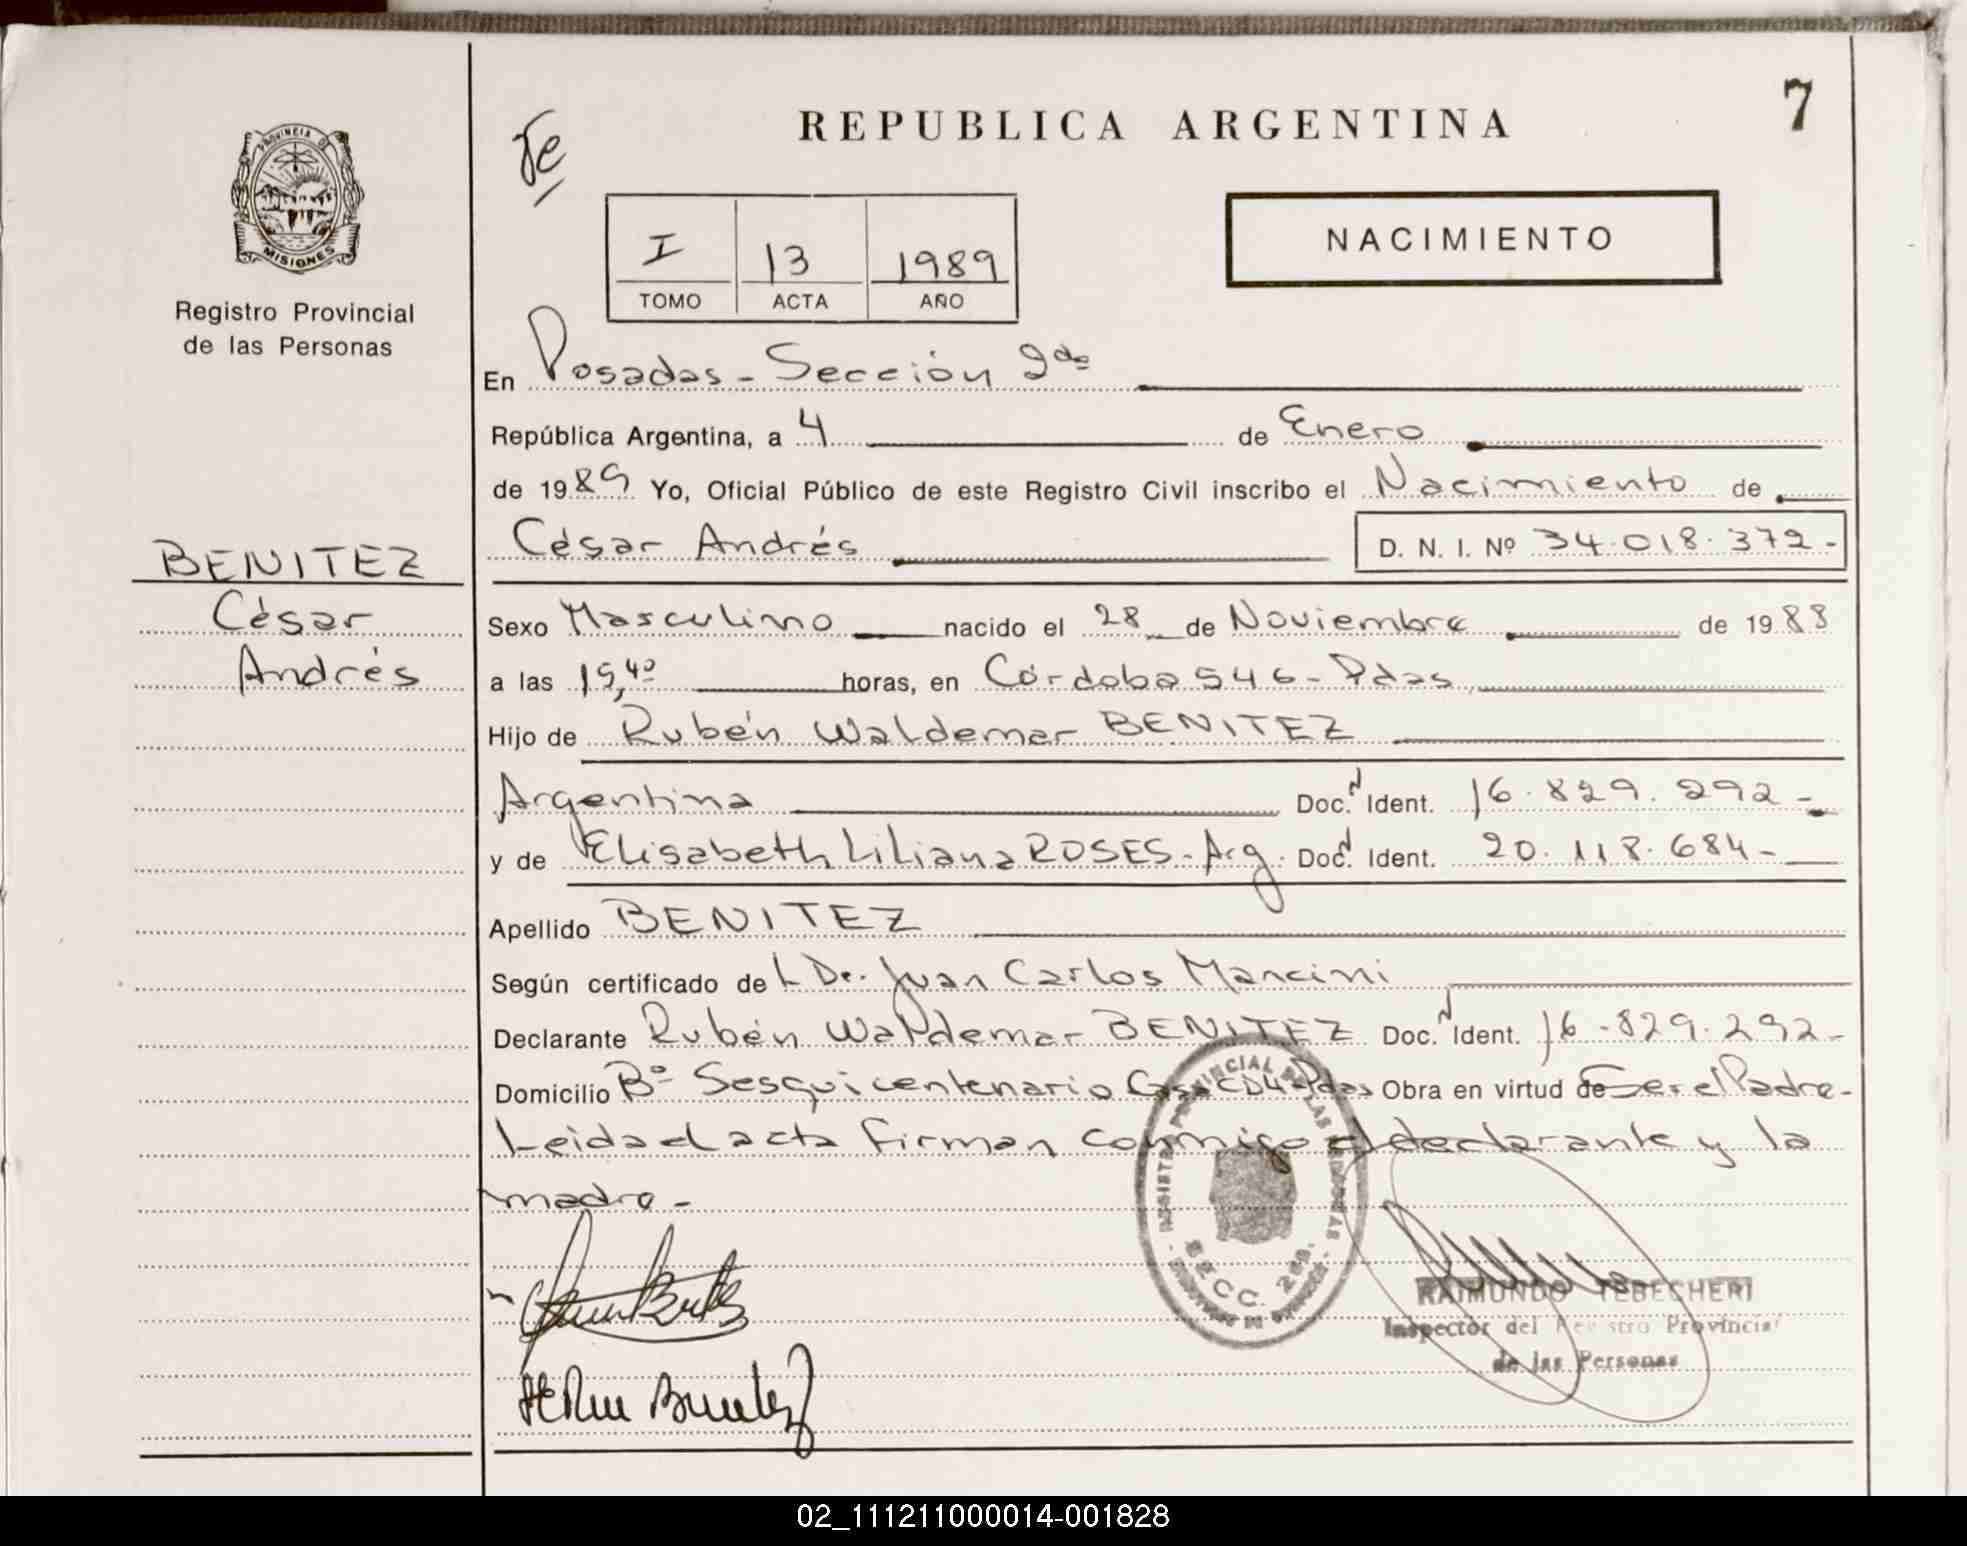 REPUBLICA ARGENTINA
7
PROVINCIA DE
MISIONES
Registro Provincial
de las Personas
NACIMIENTO
I 13 1989
TOMO ACTA AÑO
En Posadas - Sección 2da
República Argentina, a 4 de Enero
de 1989 Yo, Oficial Público de este Registro Civil inscribo el Nacimiento de
César Andrés D. N. I. Nº 34.018.372-
BENITEZ
César
Andrés
Sexo Masculino nacido el 28 de Noviembre de 1988
a las 15,40 horas, en Córdoba 546 - Pdas
Hijo de Rubén Waldemar BENITEZ
Argentina Doc. Ident. 16.829.292-
y de Elisabeth Liliana ROSES - Arg. Doc. Ident. 20.118.684-
Apellido BENITEZ
Según certificado de L Dr. Juan Carlos Mancini
Declarante Rubén Waldemar BENITEZ Doc. Ident. 16.829.292-
Domicilio Bº Sesquicentenario Casa CD4-Pdas Obra en virtud de Ser el Padre-
Leida el acta firman conmigo el declarante y la
madre-
RAIMUNDO TEBECHERI
Inspector del Registro Provincial
de las Personas
02_111211000014-001828